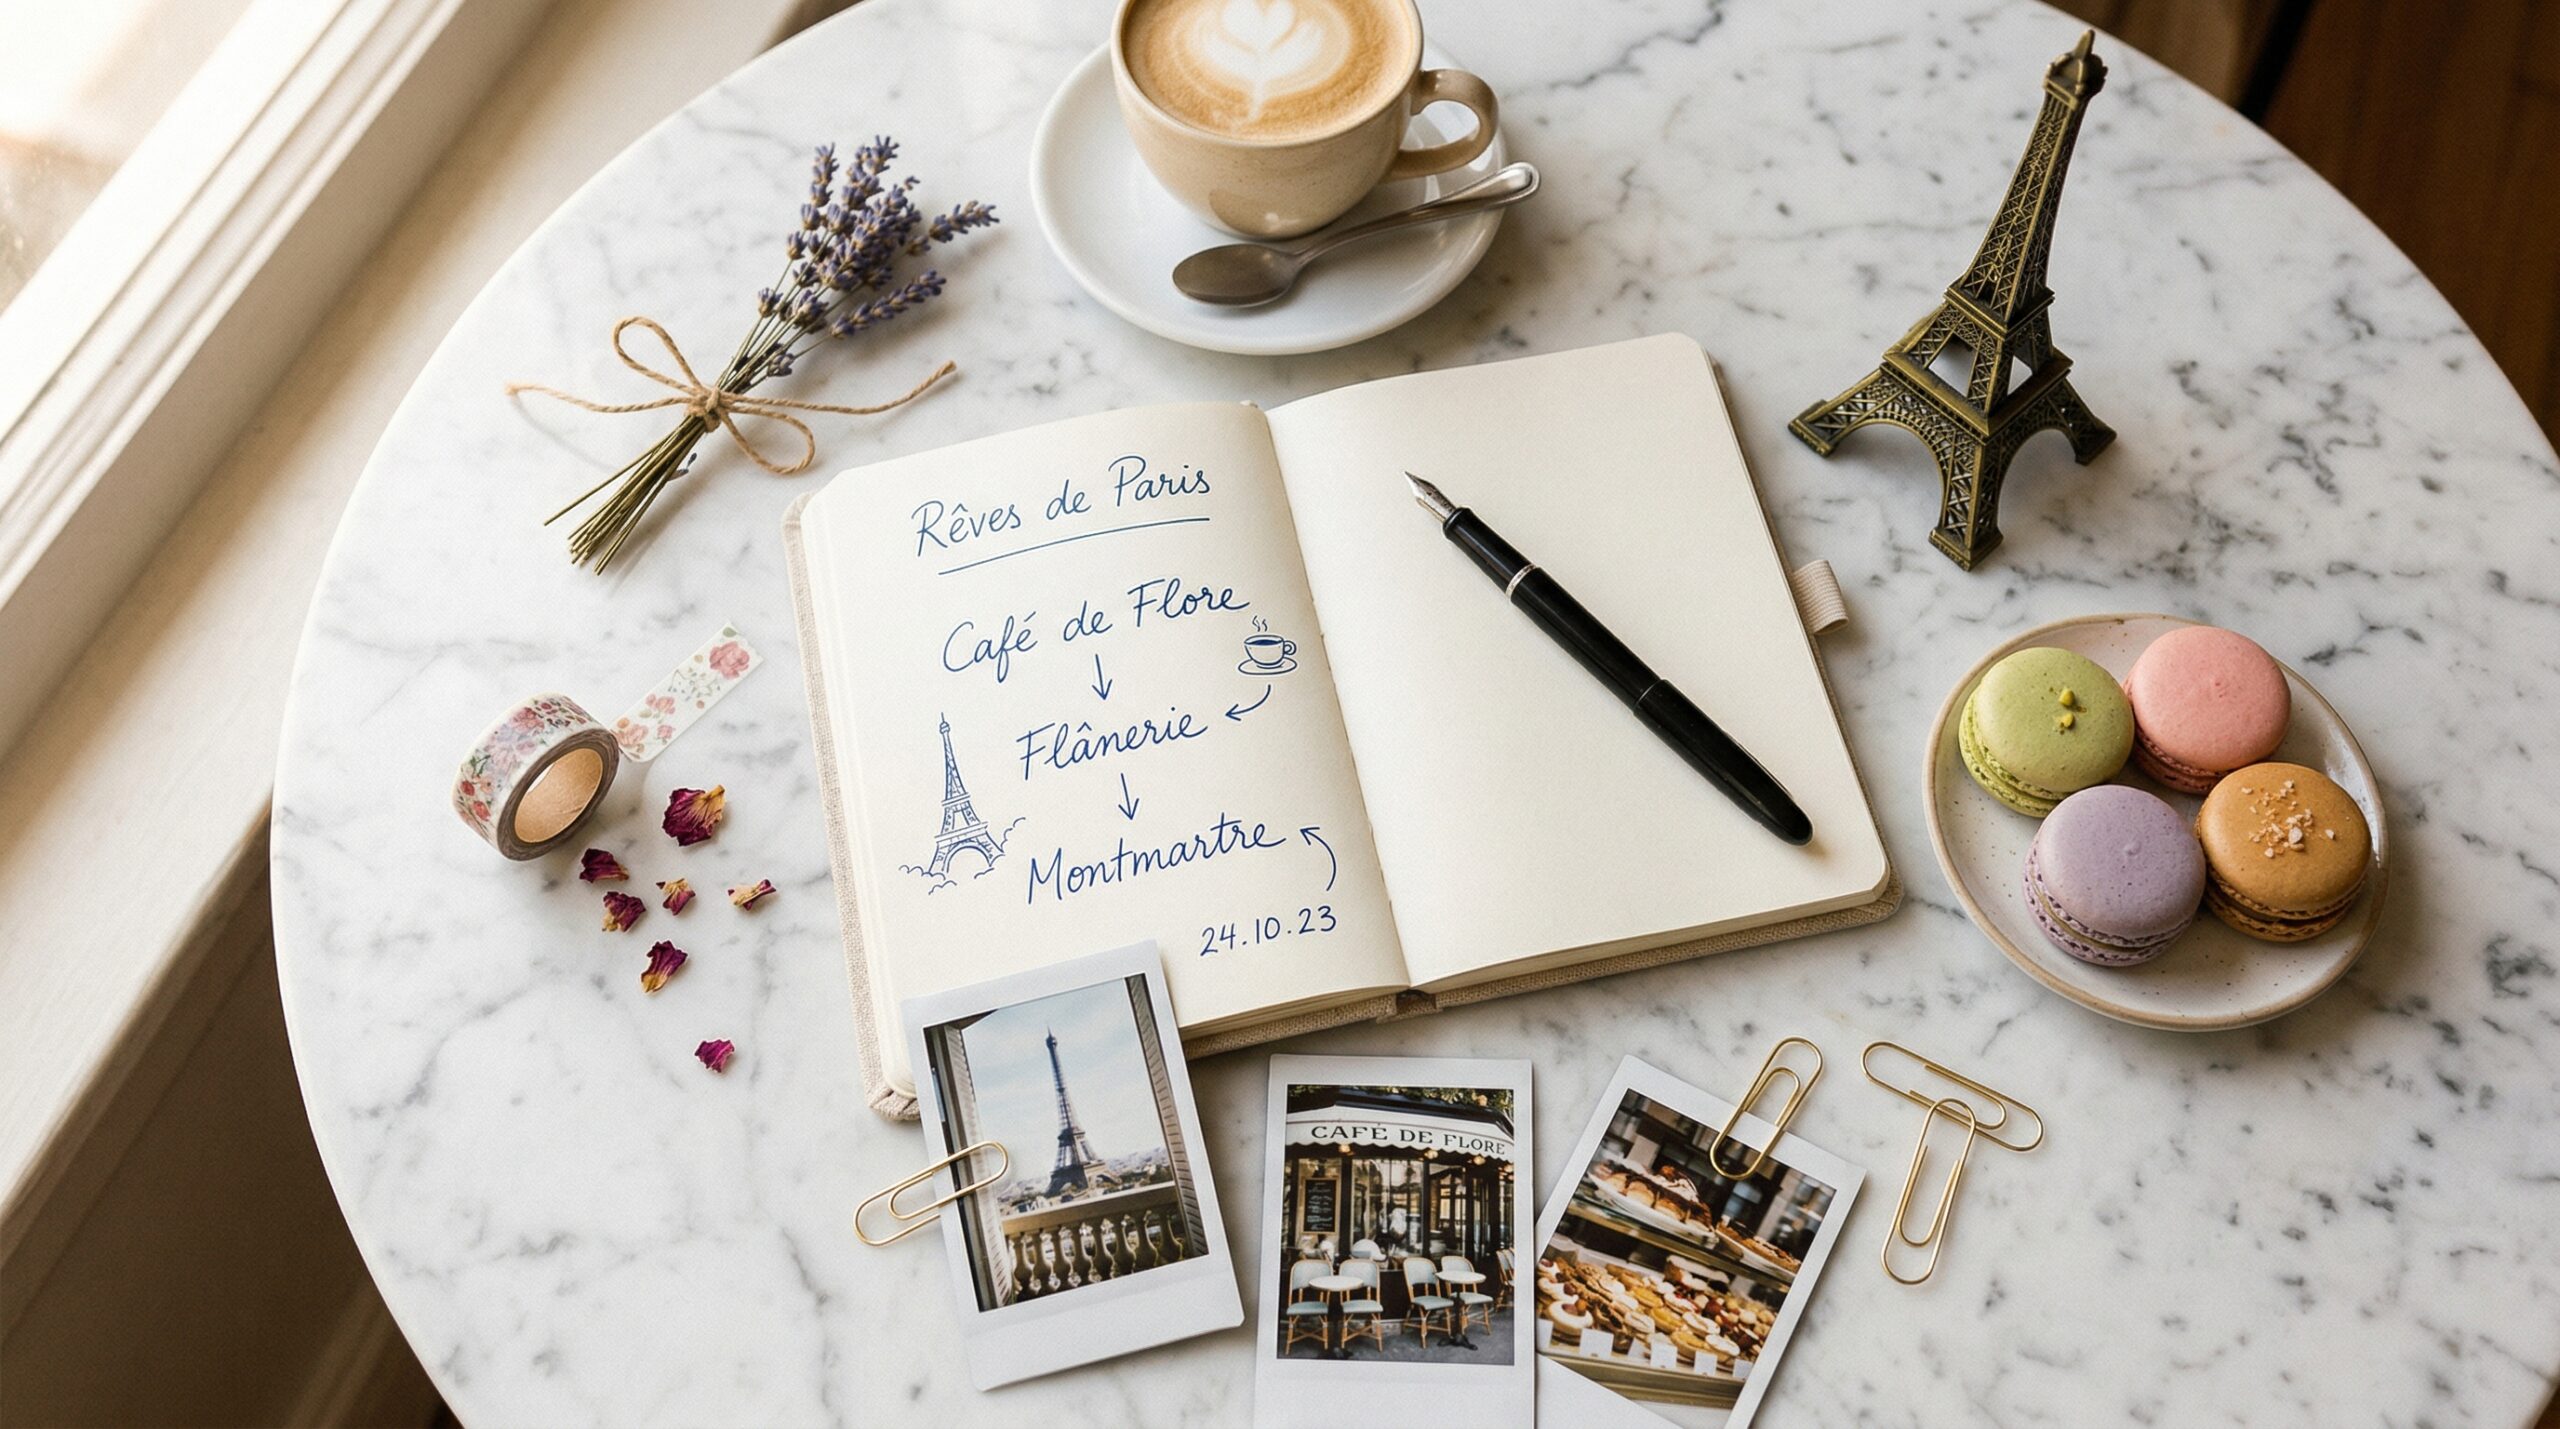 Rêves de Paris
Café de Flore
Flânerie
Montmartre
24.10.23
CAFÉ DE FLORE